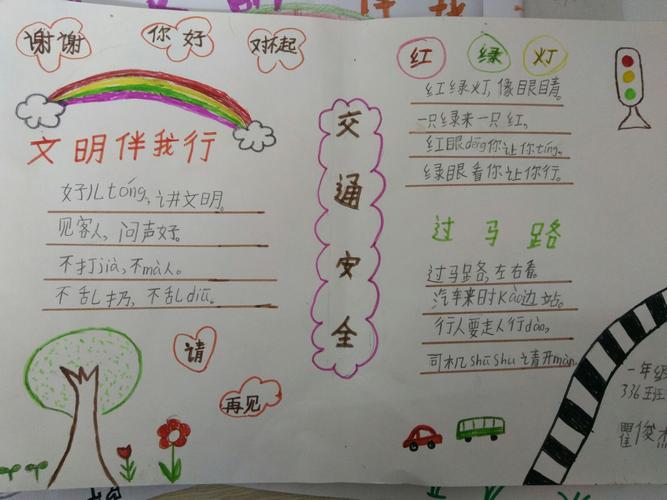 谢谢
你好
对怀起
文明伴我行
好儿tóng，讲文明。
见客人，问声好。
不打jià，不mà人。
不乱扔，不乱diū。
请
再见
交通安全
红绿灯
红绿灯，像眼睛。
一只绿来一只红，
红眼dēng你让你tíng，
绿眼看你让你行。
过马路
过马路，左右看。
汽车来时kào边站。
行人要走人行dào，
司机shūshu请开màn
一年级
336班
瞿俊杰